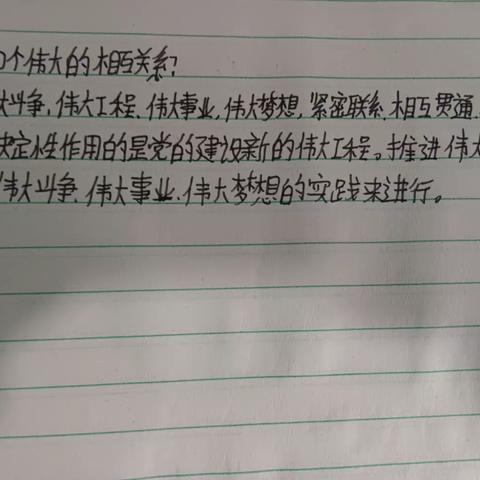 个伟大的相互关系?
斗争,伟大工程、伟大事业,伟大梦想,紧密联系、相互贯通
决定性作用的是党的建设新的伟大工程。推进伟大
伟大斗争、伟大事业、伟大梦想的实践来进行。